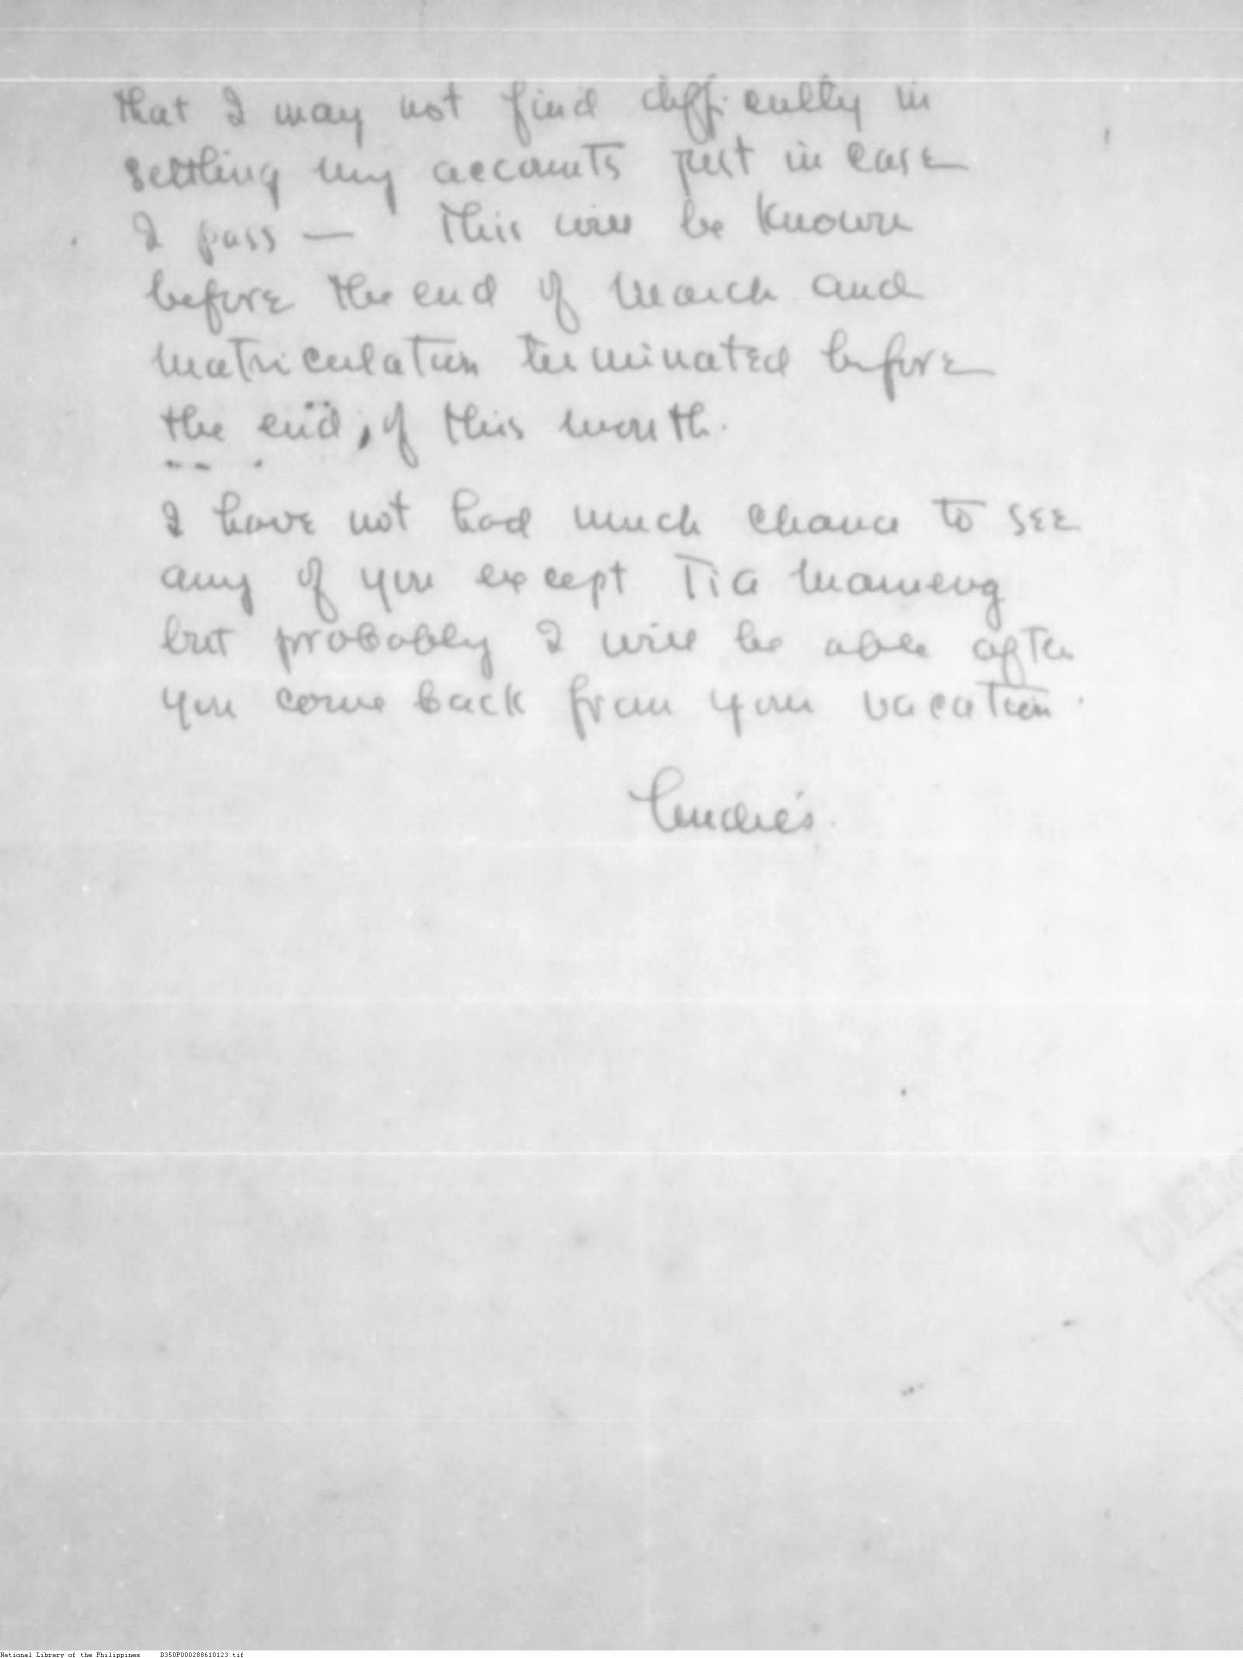 that I may not find difficulty in
settling my accounts just in case
I pass — This will be known
before the end of March and
matriculation terminated before
the end, of this month.
I have not had much chance to see
any of you except Tia Mameng
but probably I will be able after
you come back from your vacation.
Andrés.
National Library of the Philippines D350P000288610123.tif